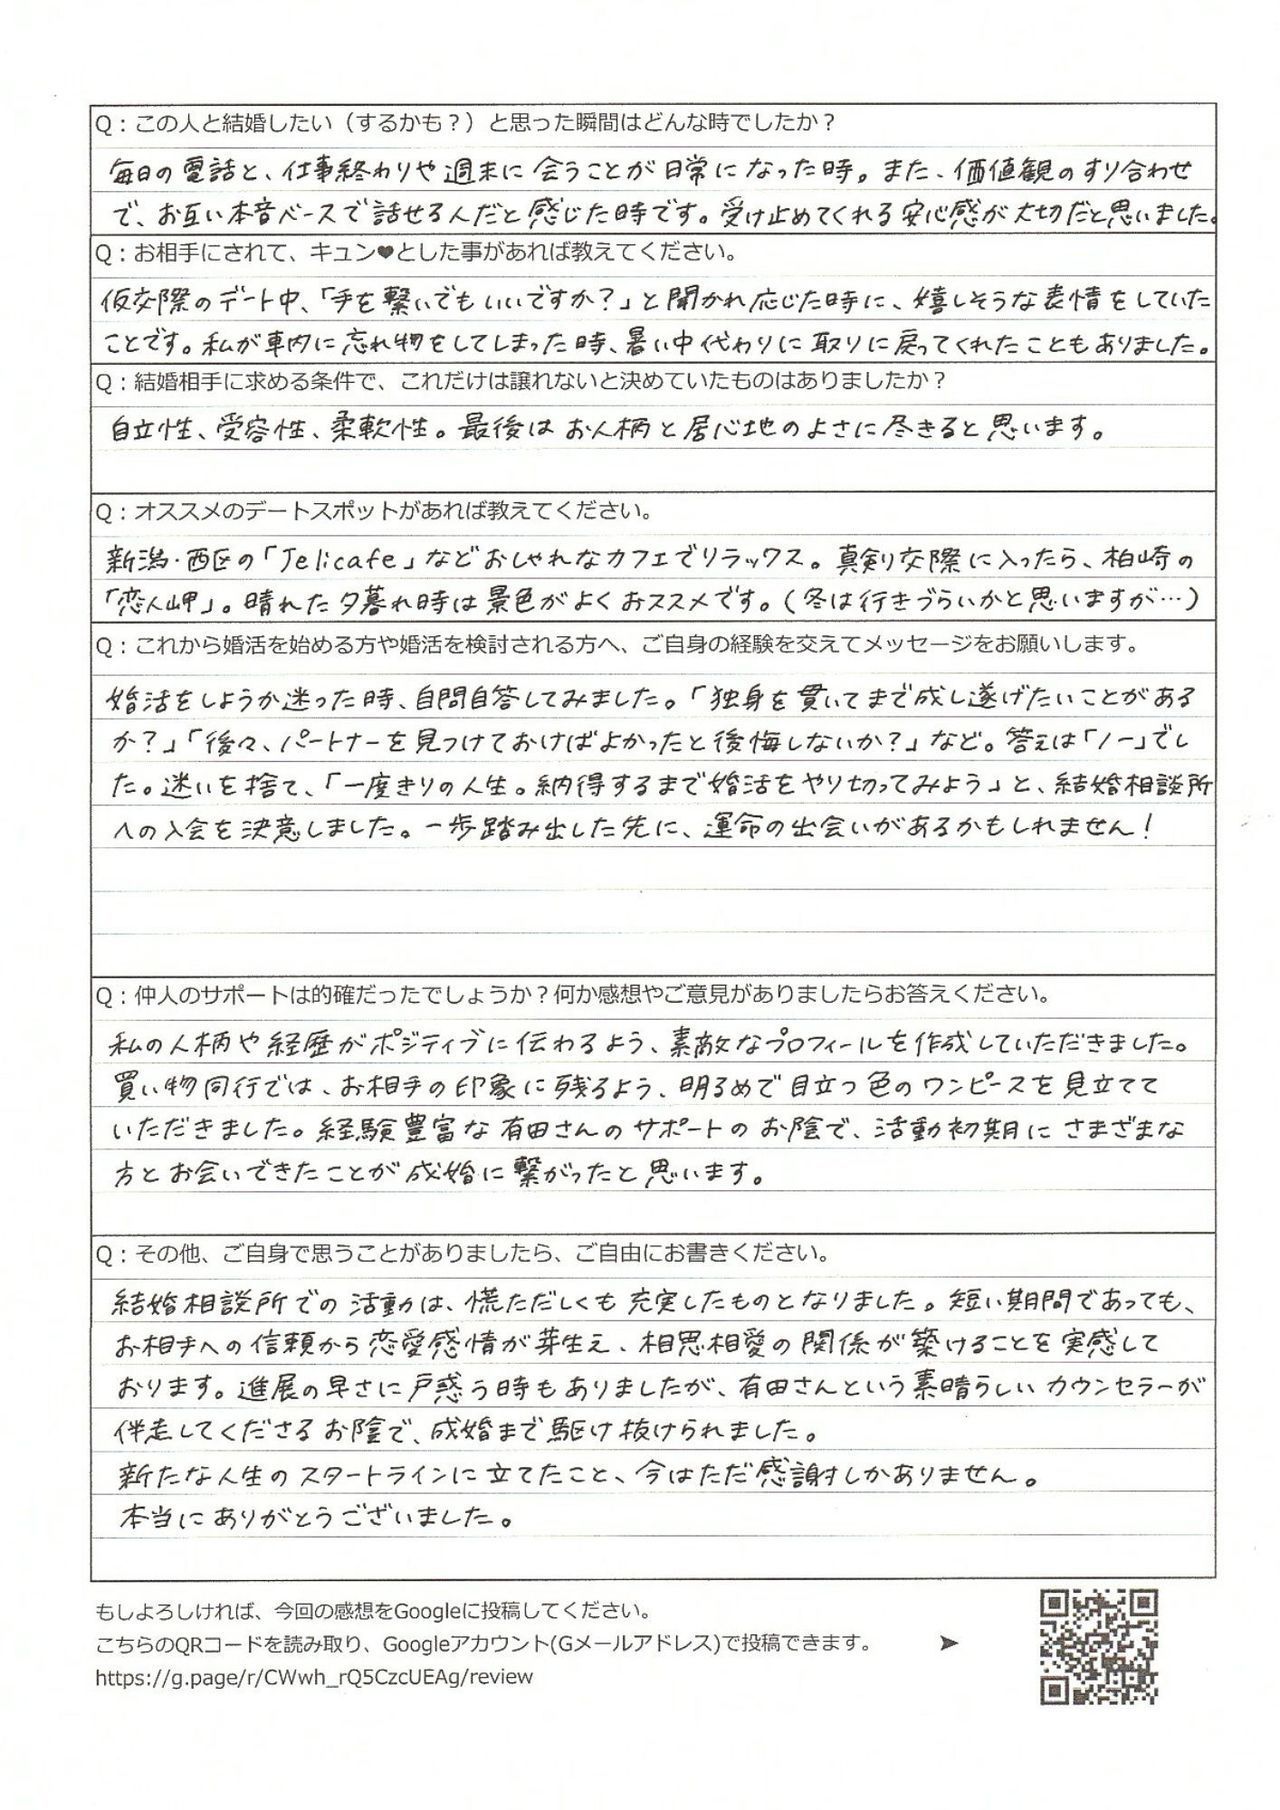 Q：この人と結婚したい（するかも？）と思った瞬間はどんな時でしたか？
毎日の電話と、仕事終わりや週末に会うことが日常になった時。また、価値観のすり合わせ
で、お互い本音ベースで話せる人だと感じた時です。受け止めてくれる安心感が大切だと思いました。
Q：お相手にされて、キュン♥とした事があれば教えてください。
仮交際のデート中、「手を繋いでもいいですか？」と聞かれ応じた時に、嬉しそうな表情をしていた
ことです。私が車内に忘れ物をしてしまった時、暑い中代わりに取りに戻ってくれたこともありました。
Q：結婚相手に求める条件で、これだけは譲れないと決めていたものはありましたか？
自立性、受容性、柔軟性。最後はお人柄と居心地のよさに尽きると思います。
Q：オススメのデートスポットがあれば教えてください。
新潟・西区の「Jelicafe」などおしゃれなカフェでリラックス。真剣交際に入ったら、柏崎の
「恋人岬」。晴れた夕暮れ時は景色がよくおススメです。（冬は行きづらいかと思いますが…）
Q：これから婚活を始める方や婚活を検討される方へ、ご自身の経験を交えてメッセージをお願いします。
婚活をしようか迷った時、自問自答してみました。「独身を貫いてまで成し遂げたいことがある
か？」「後々、パートナーを見つけておけばよかったと後悔しないか？」など。答えは「ノー」でし
た。迷いを捨て、「一度きりの人生。納得するまで婚活をやり切ってみよう」と、結婚相談所
への入会を決意しました。一歩踏み出した先に、運命の出会いがあるかもしれません！
Q：仲人のサポートは的確だったでしょうか？何か感想やご意見がありましたらお答えください。
私の人柄や経歴がポジティブに伝わるよう、素敵なプロフィールを作成していただきました。
買い物同行では、お相手の印象に残るよう、明るめで目立つ色のワンピースを見立てて
いただきました。経験豊富な有田さんのサポートのお陰で、活動初期にさまざまな
方とお会いできたことが成婚に繋がったと思います。
Q：その他、ご自身で思うことがありましたら、ご自由にお書きください。
結婚相談所での活動は、慌ただしくも充実したものとなりました。短い期間であっても、
お相手への信頼から恋愛感情が芽生え、相思相愛の関係が築けることを実感して
おります。進展の早さに戸惑う時もありましたが、有田さんという素晴らしいカウンセラーが
伴走してくださるお陰で、成婚まで駆け抜けられました。
新たな人生のスタートラインに立てたこと、今はただ感謝しかありません。
本当にありがとうございました。
もしよろしければ、今回の感想をGoogleに投稿してください。
こちらのQRコードを読み取り、Googleアカウント(Gメールアドレス)で投稿できます。 ➤
https://g.page/r/CWwh_rQ5CzcUEAg/review